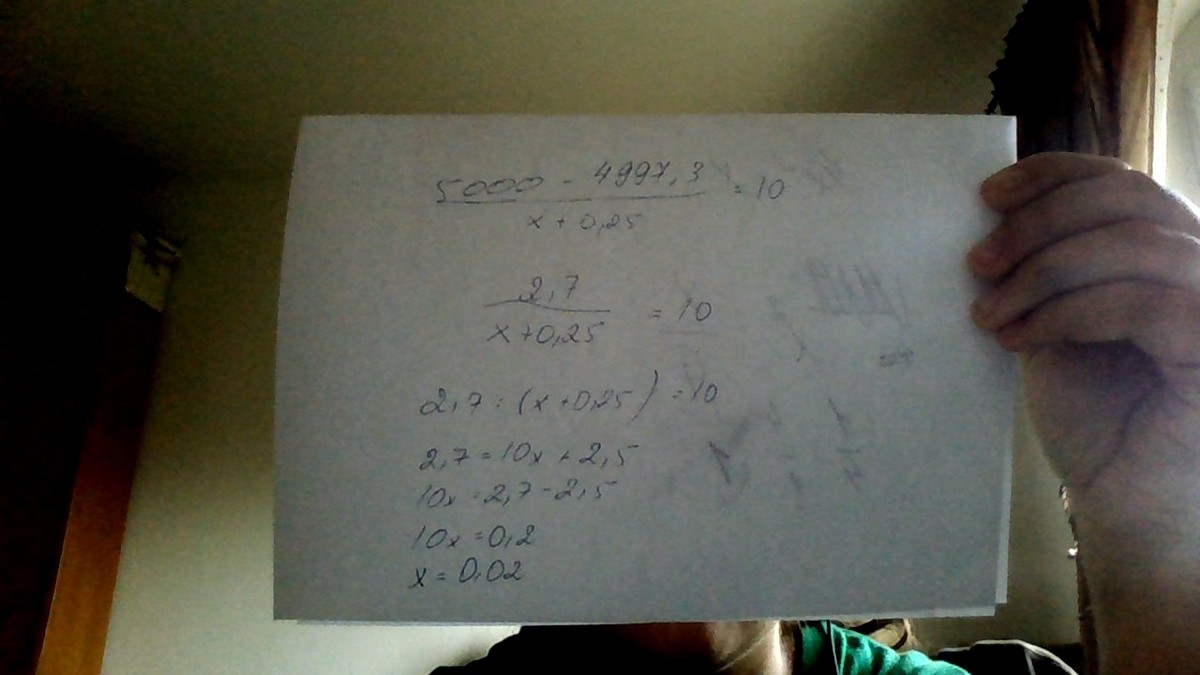 5000 - 4997,3 = 10
x + 0,25
2,7 = 10
x + 0,25
2,7 : (x + 0,25) = 10
2,7 = 10x + 2,5
10x = 2,7 - 2,5
10x = 0,2
x = 0,02